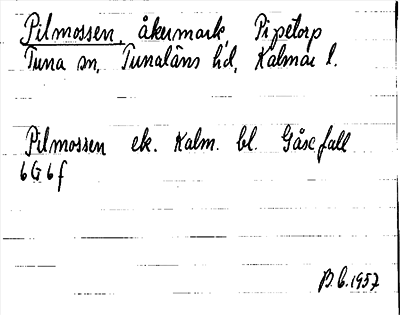 Pilmossen, åkermark, Pipetorp
Tuna sn, Tunaläns hd, Kalmar l.
Pilmossen ek. Kalm. bl. Gåsefall
6G6f
B.C. 1957